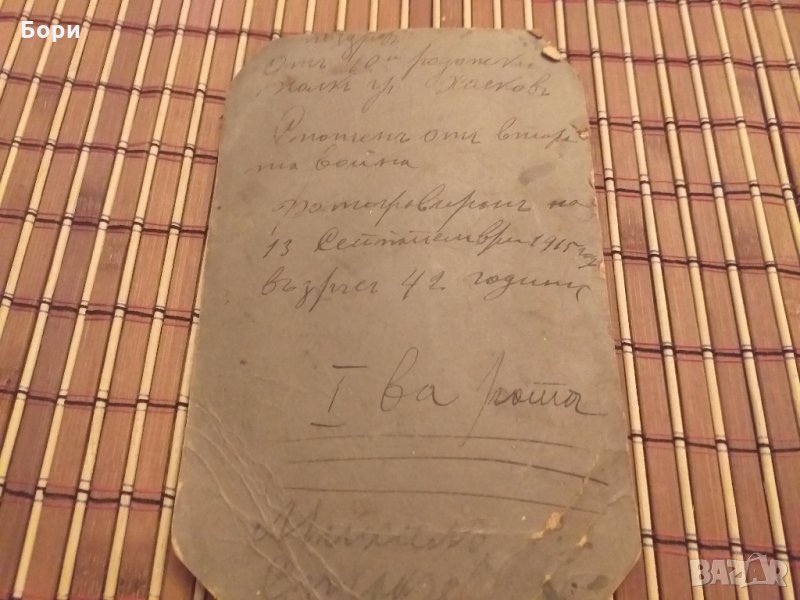 Бори
Отъ 10и родопски
полкъ гр Хасково
Спомѣнъ отъ втора
та война
фотографиранъ на
13 Септемврий 1915 год
възрѣст 42 години
I ва рота
BAZAR